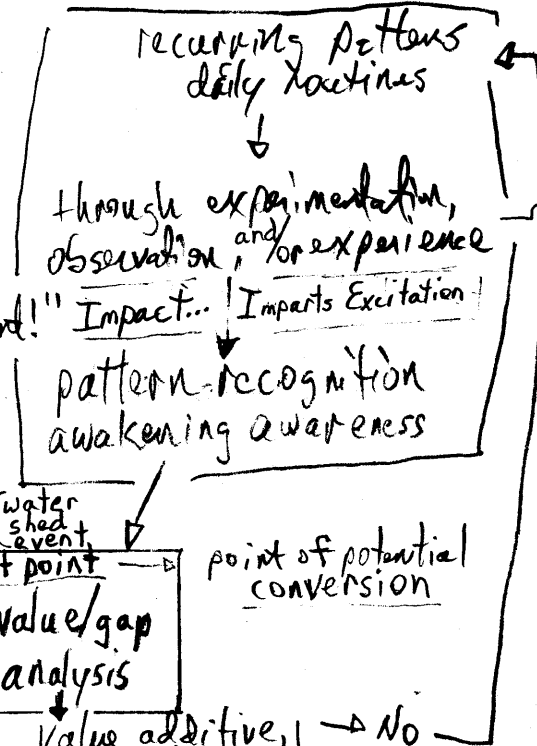 recurring patterns
daily routines
through experimentation,
observation, and/or experience
Impact... Imparts Excitation
pattern-recognition
awakening awareness
water
shed
event,
point
point of potential
conversion
value/gap
analysis
value additive, No